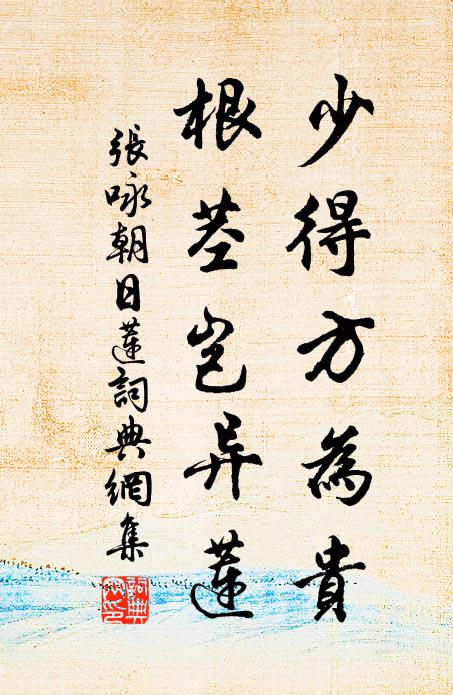 少得方為貴
根茎岂异蓮
張咏朝日蓮詞典網集
詞典